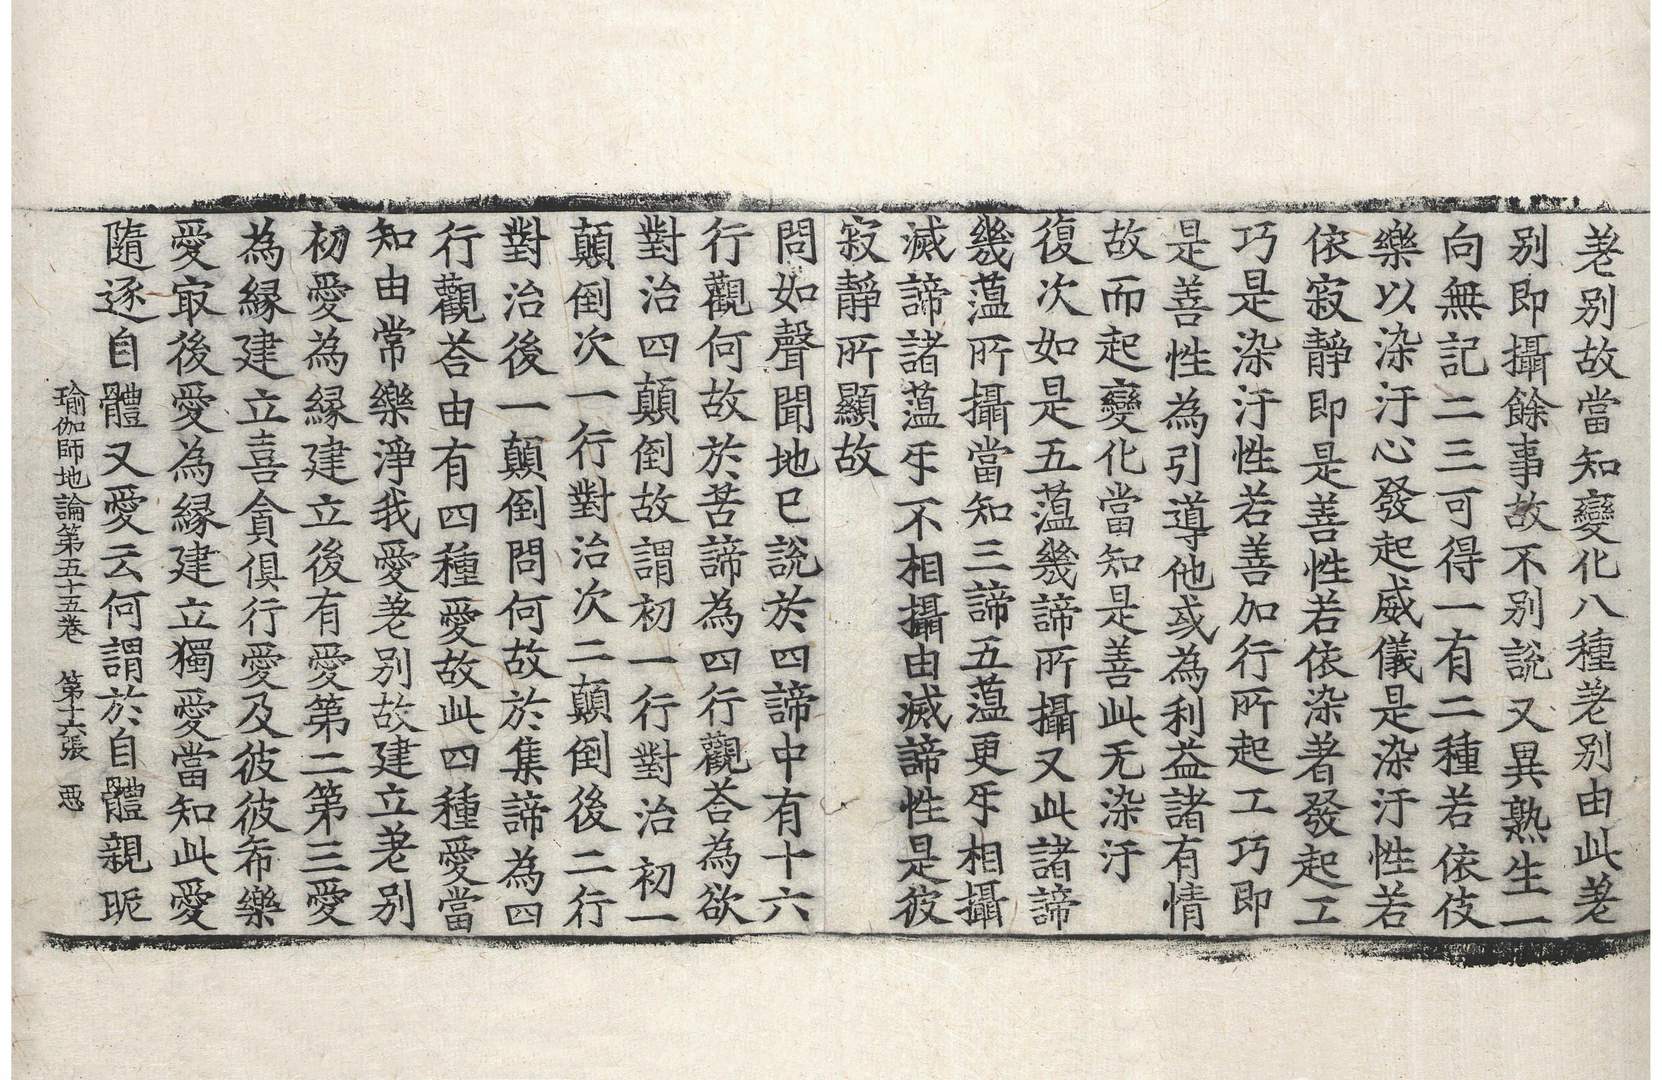 差別故當知變化八種差別由此差
別即攝餘事故不別說又異熟生一
向無記二三可得一有二種若依伎
樂以染汙心發起威儀是染汙性若
依寂靜即是善性若依染著發起工
巧是染汙性若善加行所起工巧即
是善性為引導他或為利益諸有情
故而起變化當知是善此无染汙
復次如是五薀幾諦所攝又此諸諦
幾薀所攝當知三諦五薀更㸦相攝
滅諦諸薀㸦不相攝由滅諦性是彼
寂靜所顯故
問如聲聞地已說於四諦中有十六
行觀何故於苦諦為四行觀荅為欲
對治四顛倒故謂初一行對治初一
顛倒次一行對治次二顛倒後二行
對治後一顛倒問何故於集諦為四
行觀荅由有四種愛故此四種愛當
知由常樂淨我愛差別故建立差別
初愛為縁建立後有愛第二第三愛
為縁建立喜貪俱行愛及彼彼希樂
愛㝡後愛為縁建立獨愛當知此愛
隨逐自體又愛云何謂於自體親昵
瑜伽師地論第五十五卷 第十六張 惡